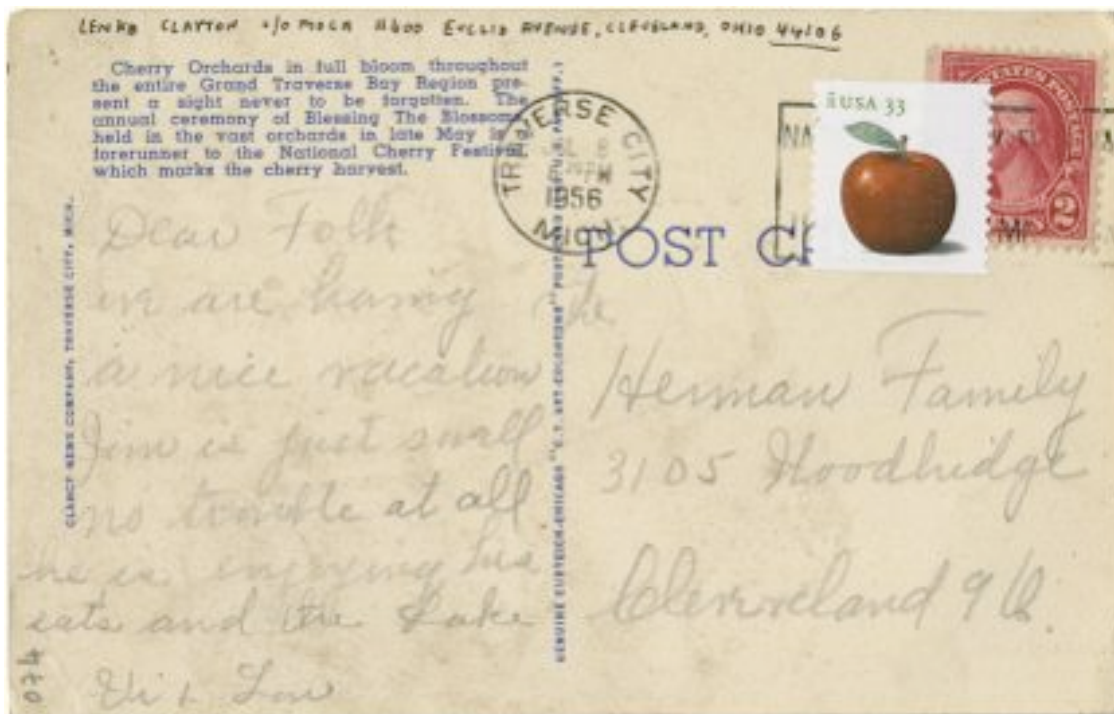 LENKA CLAYTON c/o MOCA 11400 EUCLID AVENUE, CLEVELAND, OHIO 44106
Cherry Orchards in full bloom throughout
the entire Grand Traverse Bay Region pre-
sent a sight never to be forgotten. The
annual ceremony of Blessing The Blossoms
held in the vast orchards in late May is a
forerunner to the National Cherry Festival,
which marks the cherry harvest.
TRAVERSE CITY
PM
1956
MICH
USA 33
UNITED STATES POSTAGE
2
POST CA
CLANCY NEWS COMPANY, TRAVERSE CITY, MICH.
GENUINE CURTEICH-CHICAGO "C.T. ART-COLORTONE" POST CARD
Dear Folk
we are having
a nice vacation
Jim is just small
no trouble at all
he is enjoying his
eats and the Lake
Vi + Lou
The
Herman Family
3105 Woodbridge
Cleveland 9 O
074